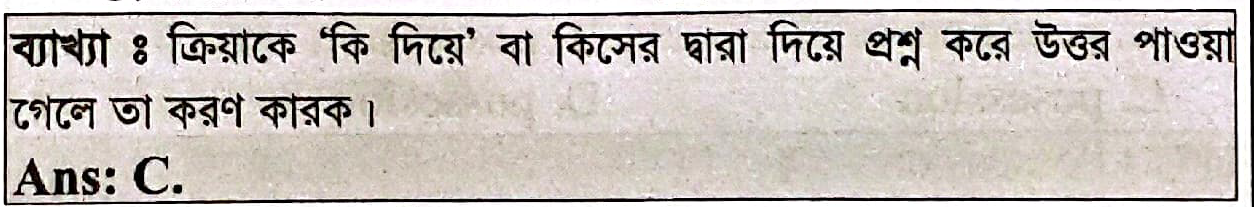 ব্যাখ্যা ঃ ক্রিয়াকে ‘কি দিয়ে’ বা কিসের দ্বারা দিয়ে প্রশ্ন করে উত্তর পাওয়া
গেলে তা করণ কারক।
Ans: C.